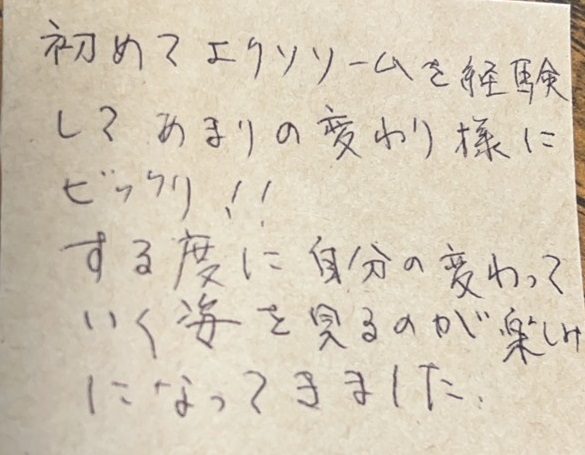 初めてエクソソームを経験
してあまりの変わり様に
ビックリ!!
する度に自分の変わって
いく姿を見るのが楽しみ
になってきました.